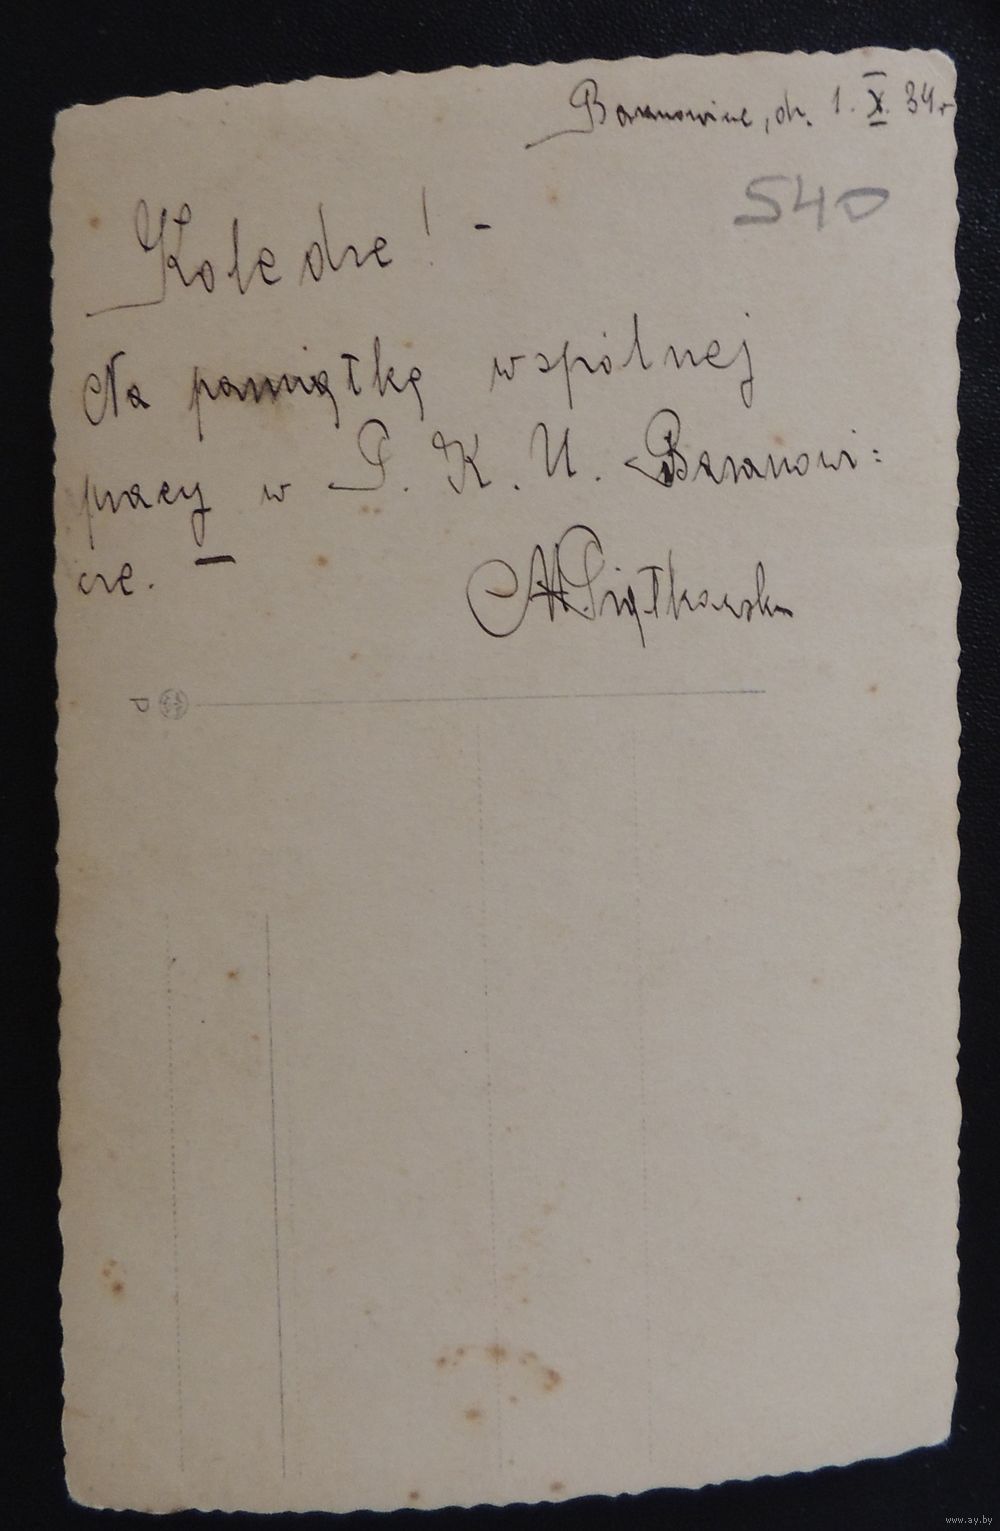 Baranowicze, dn. 1. X. 34 r
540
Koledze! -
Na pamiątkę wspólnej
pracy w P. K. U. Baranowi:
cze. —
Piątkowski
www.ay.by